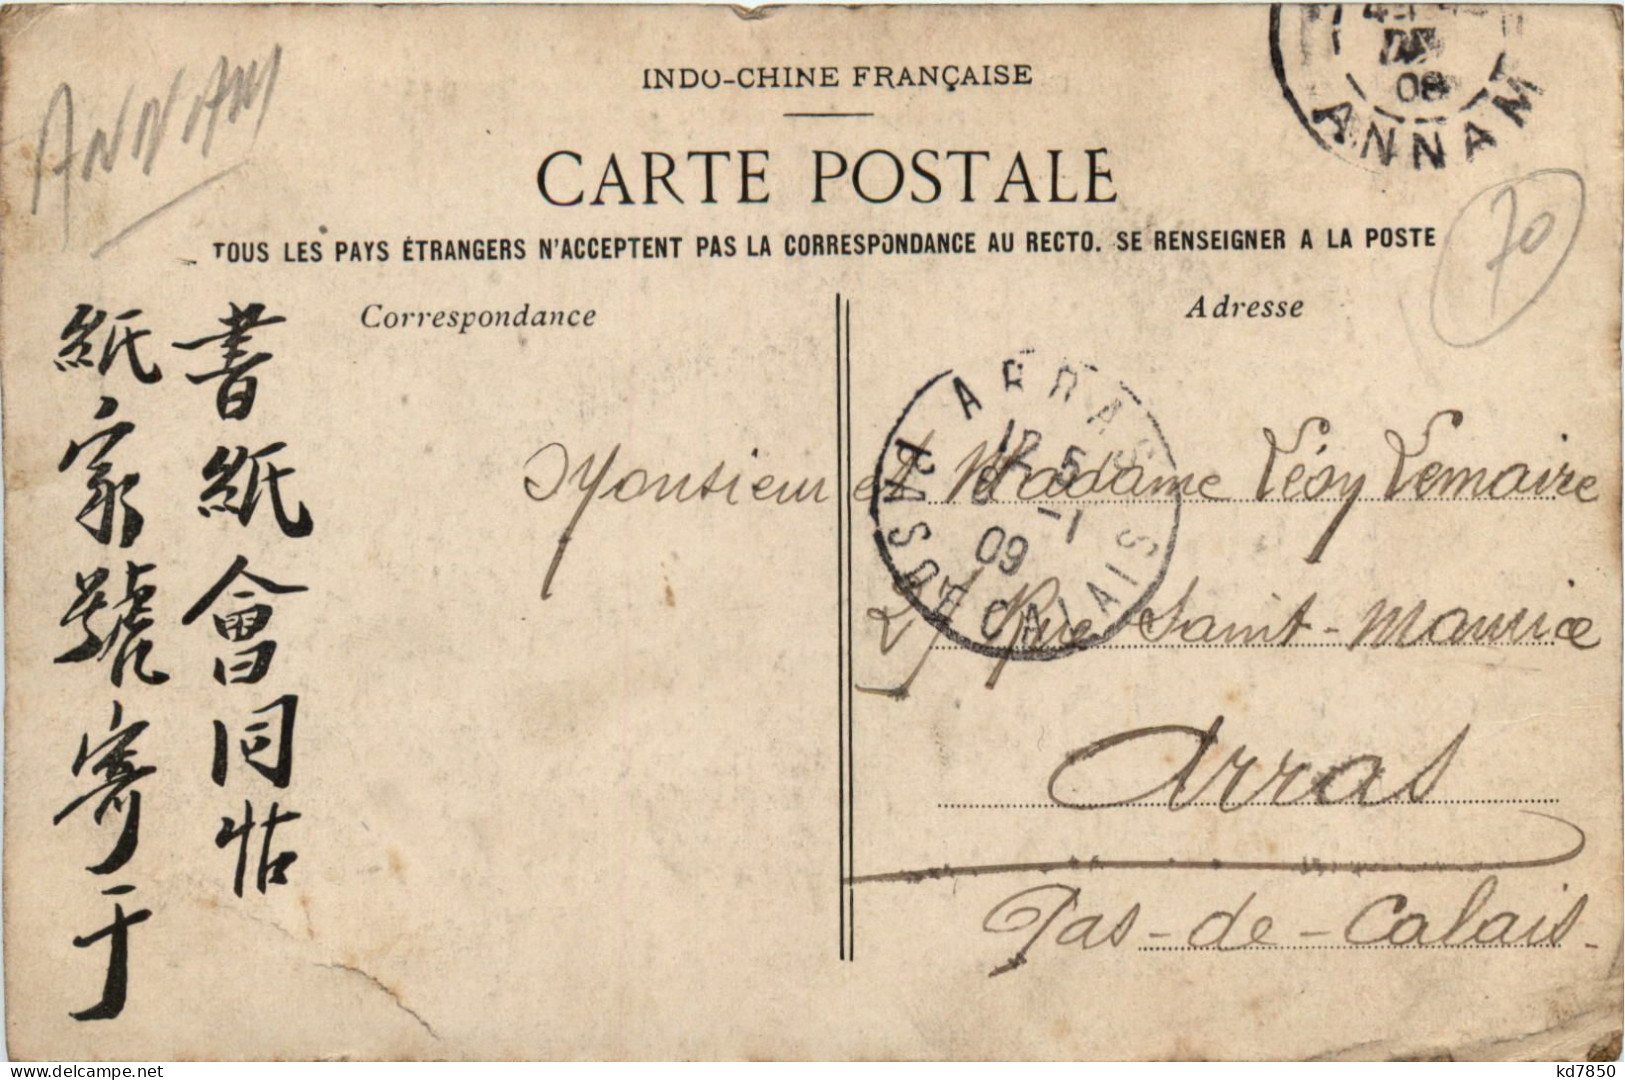 ANNAM
INDO-CHINE FRANÇAISE
DE
08
ANNAM
CARTE POSTALE
70
TOUS LES PAYS ÉTRANGERS N'ACCEPTENT PAS LA CORRESPONDANCE AU RECTO. SE RENSEIGNER A LA POSTE
Correspondance
Adresse
書紙會同怗
紙家號寄于
ARRAS
5 -1
09
PAS DE CALAIS
Monsieur et Madame Lésy Lemaire
27 Rue Saint-Maurice
Arras
Pas-de-Calais-
kd7850